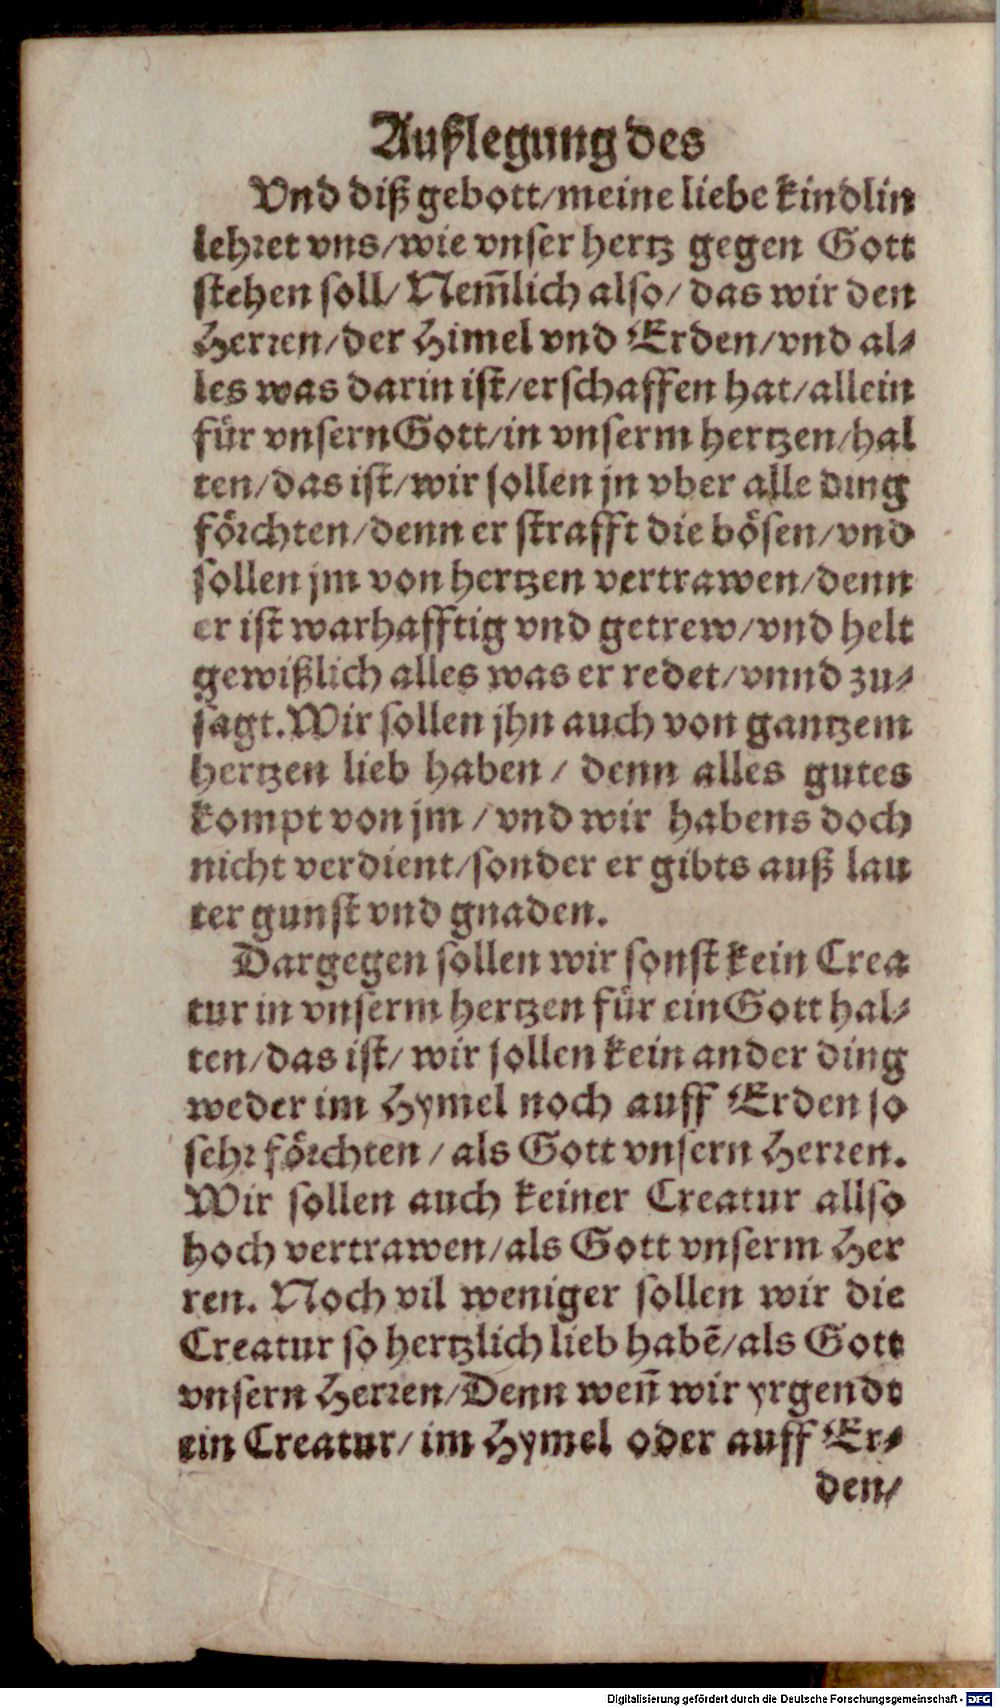 Außlegung des
Vnd diß gebott/meine liebe kindlin
lehret vns/wie vnser hertz gegen Gott
stehen soll/ Nem̃lich also/ das wir den
Herren/der Himel vnd Erden/vnd al⸗
les was darin ist/erschaffen hat/allein
für vnsern Gott/in vnserm hertzen/hal
ten/das ist/wir sollen jn vber alle ding
förchten/denn er strafft die bösen/vnd
sollen jm von hertzen vertrawen/denn
er ist warhafftig vnd getrew/vnd helt
gewißlich alles was er redet/vnnd zu⸗
sagt. Wir sollen jhn auch von gantzem
hertzen lieb haben/ denn alles gutes
kompt von jm/vnd wir habens doch
nicht verdient/sonder er gibts auß lau
ter gunst vnd gnaden.
Dargegen sollen wir sonst kein Crea
tur in vnserm hertzen für ein Gott hal⸗
ten/das ist/ wir sollen kein ander ding
weder im Hymel noch auff Erden so
sehr förchten/ als Gott vnsern Herren.
Wir sollen auch keiner Creatur allso
hoch vertrawen/als Gott vnserm Her
ren. Noch vil weniger sollen wir die
Creatur so hertzlich lieb habẽ/als Gott
vnsern Herren/Denn weñ wir yrgendt
ein Creatur/ im Hymel oder auff Er⸗
den/
Digitalisierung gefördert durch die Deutsche Forschungsgemeinschaft - DFG